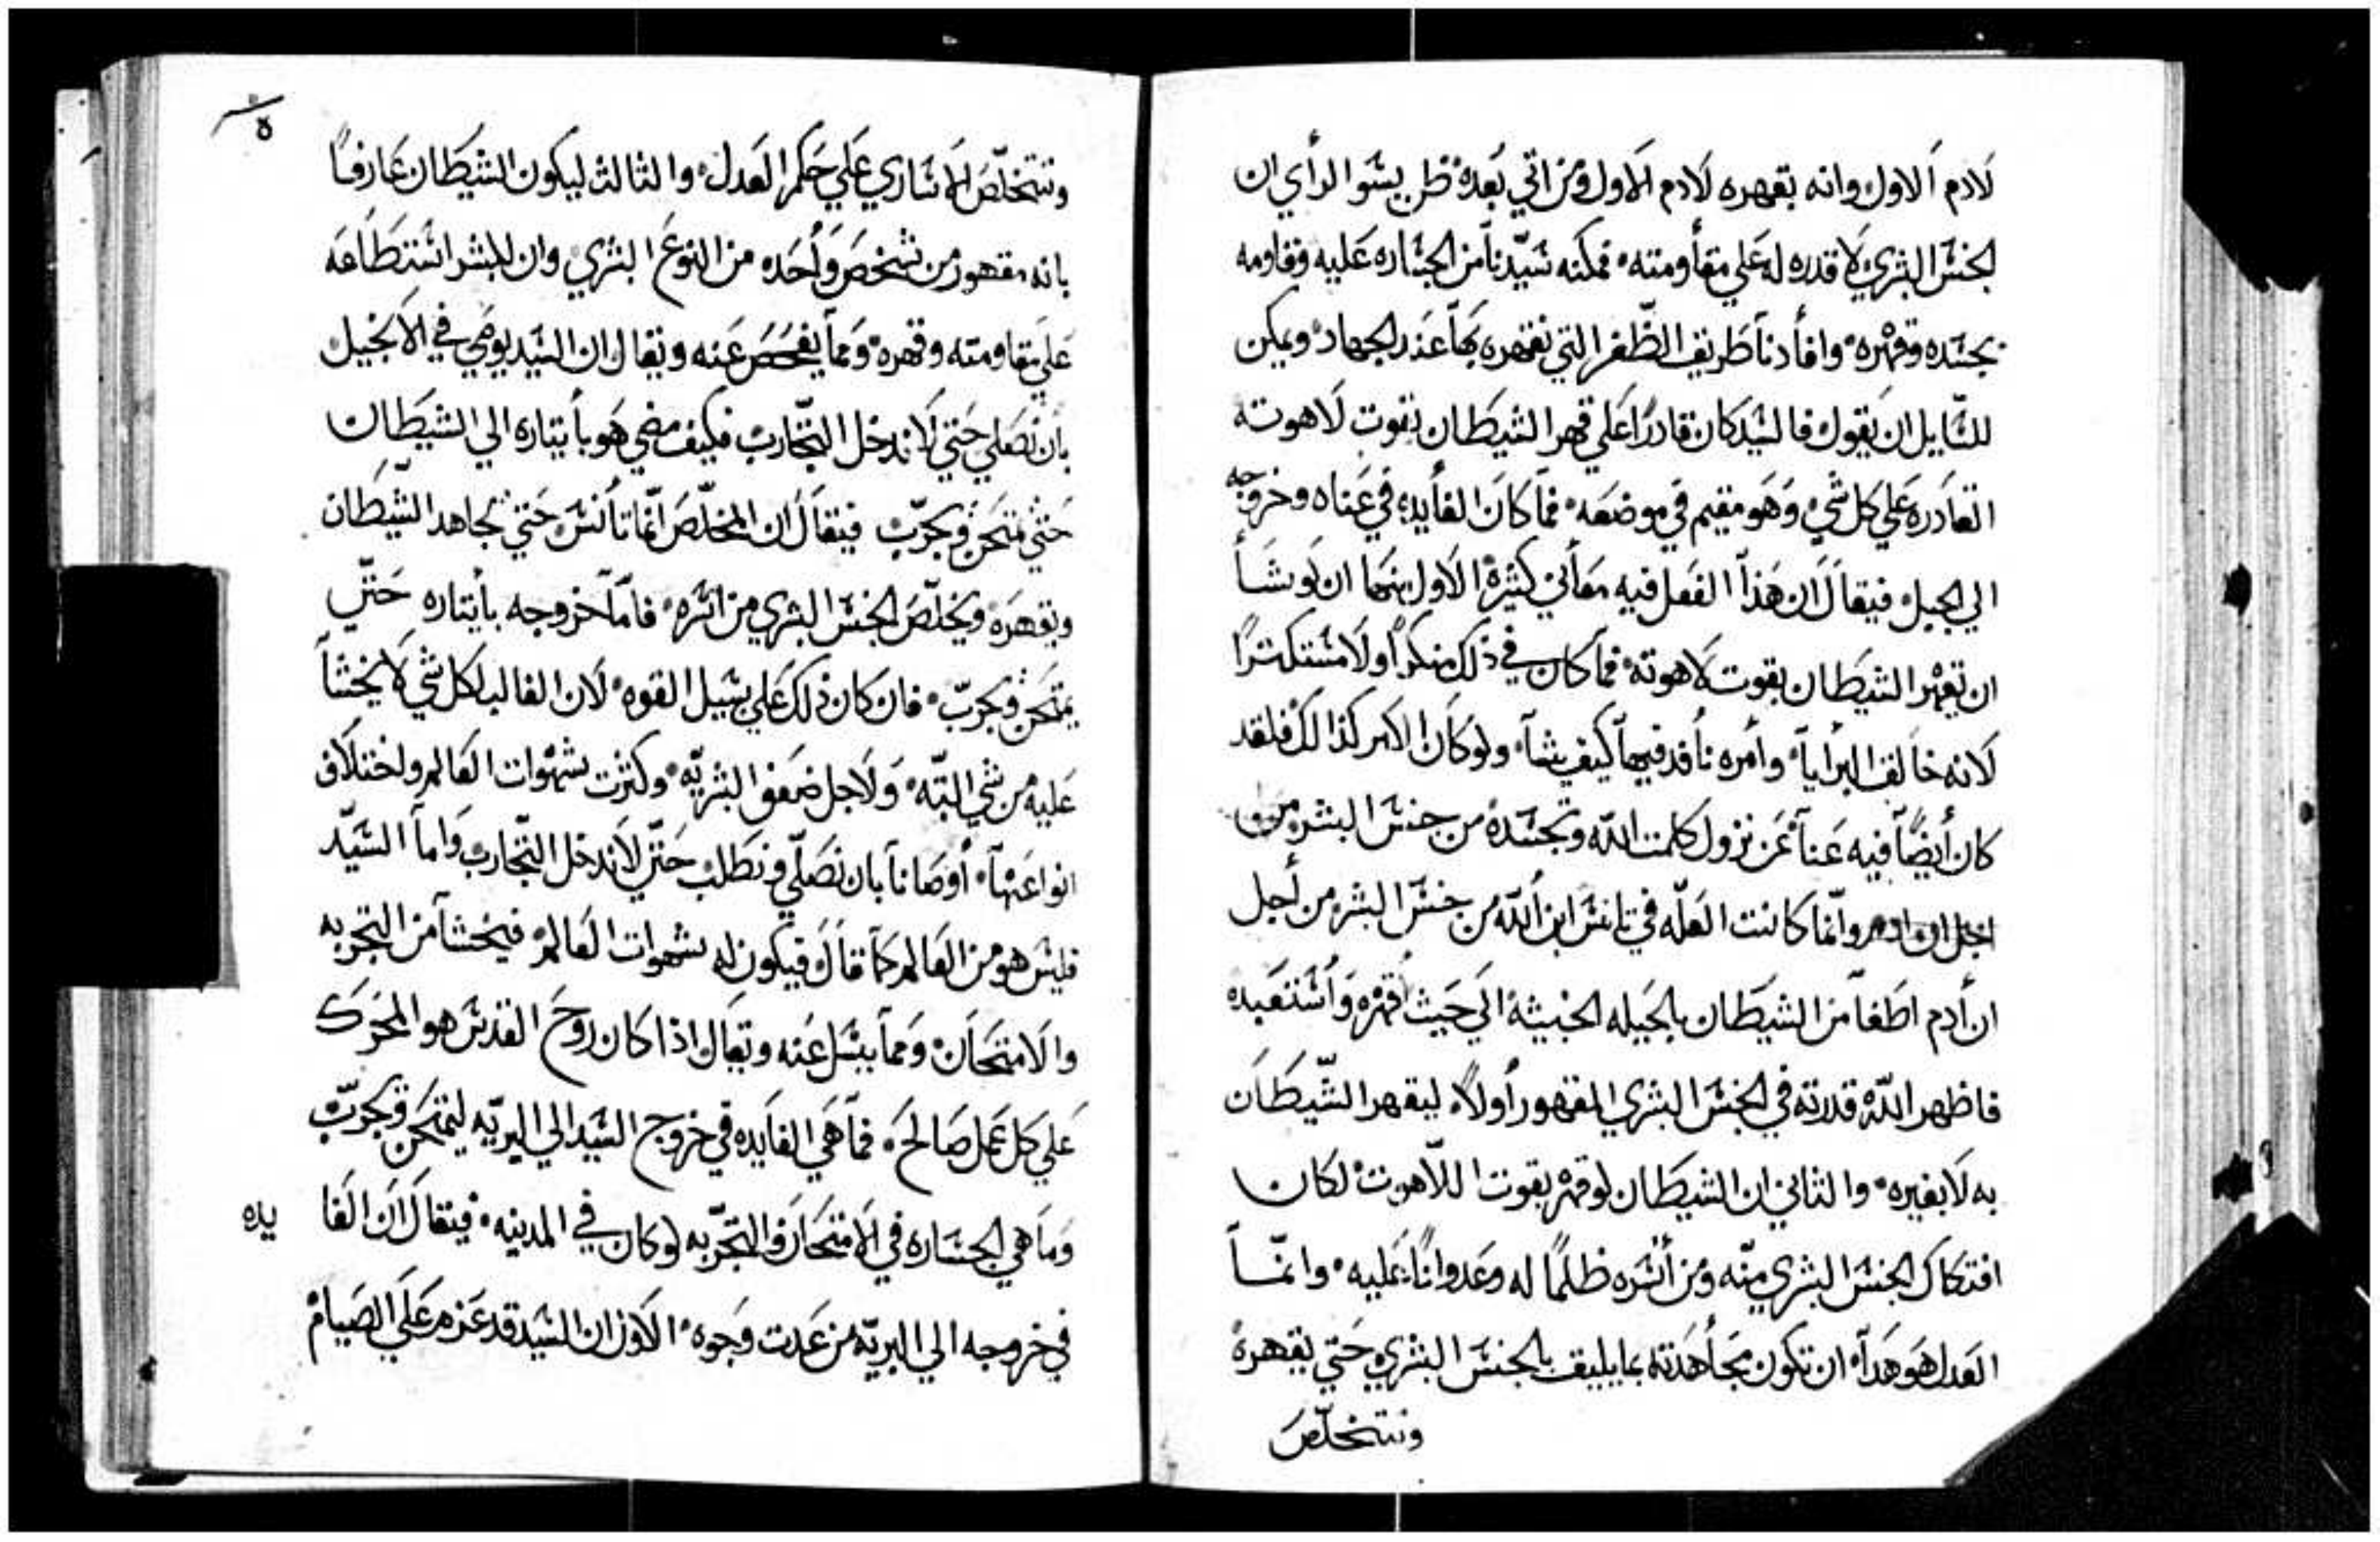 لادم الاول وانه بقهره لادم الاول ومن اتي بعده ظن بسو الراي ان
لجنس البشري لا قدره له على مقاومته فمكنه سيّدنا من الجساره عليه وقاومه
بجسده وقهره وافادنا طريق الظفر التي نقهره بها عند الجهاد ويمكن
للسايل ان يقول فالسيد كان قادرًا على قهر الشيطان بقوت لاهوته
القادره على كل شي وهو مقيم في موضعه فما كان الفايده في عناه وخروجه
الي الجبل فيقال ان هذا الفعل فيه معاني كثيرة الاول منهما ان لو شا
ان يقهر الشيطان بقوت لاهوته فما كان في ذلك منكرًا ولا مستكترًا
لانه خالق البرايا وامره نافد فيها كيف شا ولو كان الامر كذالك فلقد
كان أيضًا فيه عنا عن نزول كلمت اللّه وتجسّده من جنس البشر من
اجل ان ادم وانّما كانت العلّه في تانس ابن اللّه من جنس البشر من أجل
ان أدم اطغا من الشيطان بالحيله الخبيثة الي حيث اقهره وأستعبده
فاظهر اللّه قدرته في الجنس البشري المقهور أولًا ليقهر الشّيطان
به لا بغيره والثاني ان الشيطان لو قهره بقوت اللّاهوت لكان
افتكاك الجنس البشري منّه ومن أسره ظلمًا له وعدوانًا عليه وانمّا
العدل هو هدا ان تكون مجاهدته بما يليق بالجنس البشري حتي يقهره
ونتخلّص
٥
ونتخلّص الاساري علي حكم العدل والثالث ليكون الشيطان عارفًا
بانه مقهور من شخص وأحده من النوع البشري وان للبشر استطاعه
علي مقاومته وقهره ومما يفحص عنه ويقال ان السيد يوصي في الانجيل
بان نصلي حتي لا ندخل التّجارب فكيف مضي هو بأيتاره الي الشيطان
حتي يمتحن ويجرّب فيقال ان المخلّص انّما تانس حتي يجاهد الشّيطان
ويقهره ويخلّص الجنس البشري من اسره فامّا خروجه بأيتاره حتّي
يمتحن ويجرّب فان كان ذلك علي سبيل القوه لان الغالب لكل شي لا يخشا
عليه من شي البتّه ولاجل ضعف البشريّه وكثرت شهوات العالم واختلاف
انواعها أوصانا بان نصلّي ونطلب حتّي لا ندخل التّجارب واما السّيّد
فليس هو من العالم كما قال فيكون له شهوات العالم فيخشا من التجربه
والامتحان ومما يسل عنه ويقال اذا كان روح القدس هو المحرك
علي كل عمل صالح فما هي الفايده في خروج السيد الي البريّه ليمتحن ويجرّب
وما هي الجساره في الامتحان والتجّربه لو كان في المدينه فيقال ان الفا يده
في خروجه الي البريّه من عدت وجوه الاول ان السيد قد عزم علي الصيام